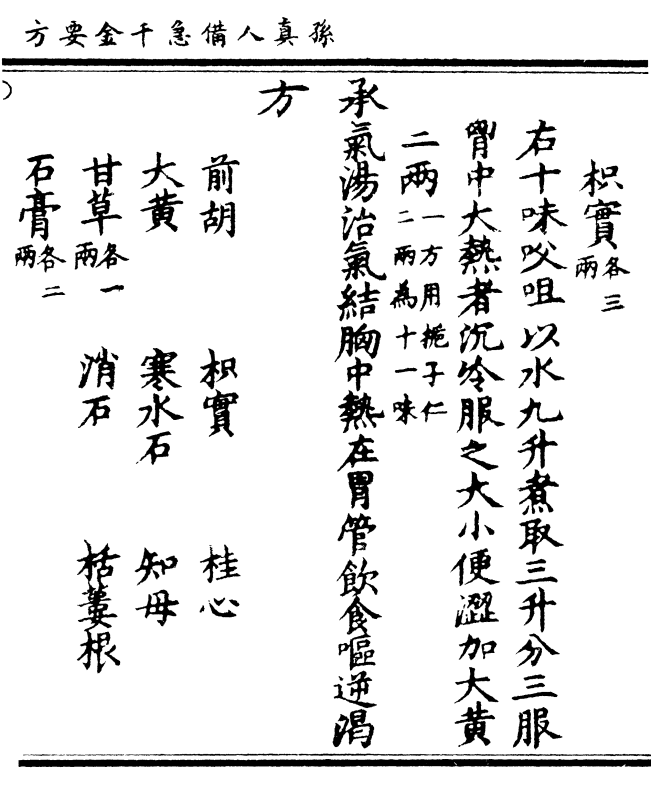 孫真人備急千金要方
枳實各三兩
右十味㕮咀以水九升煮取三升分三服
胷中大熱者沉冷服之大小便澀加大黃
二兩一方用梔子仁二兩為十一味
承氣湯治氣結胸中熱在胃管飲食嘔逆渴
方
前胡 枳實 桂心
大黃 寒水石 知母
甘草各一兩 消石 栝蔞根
石膏各二兩